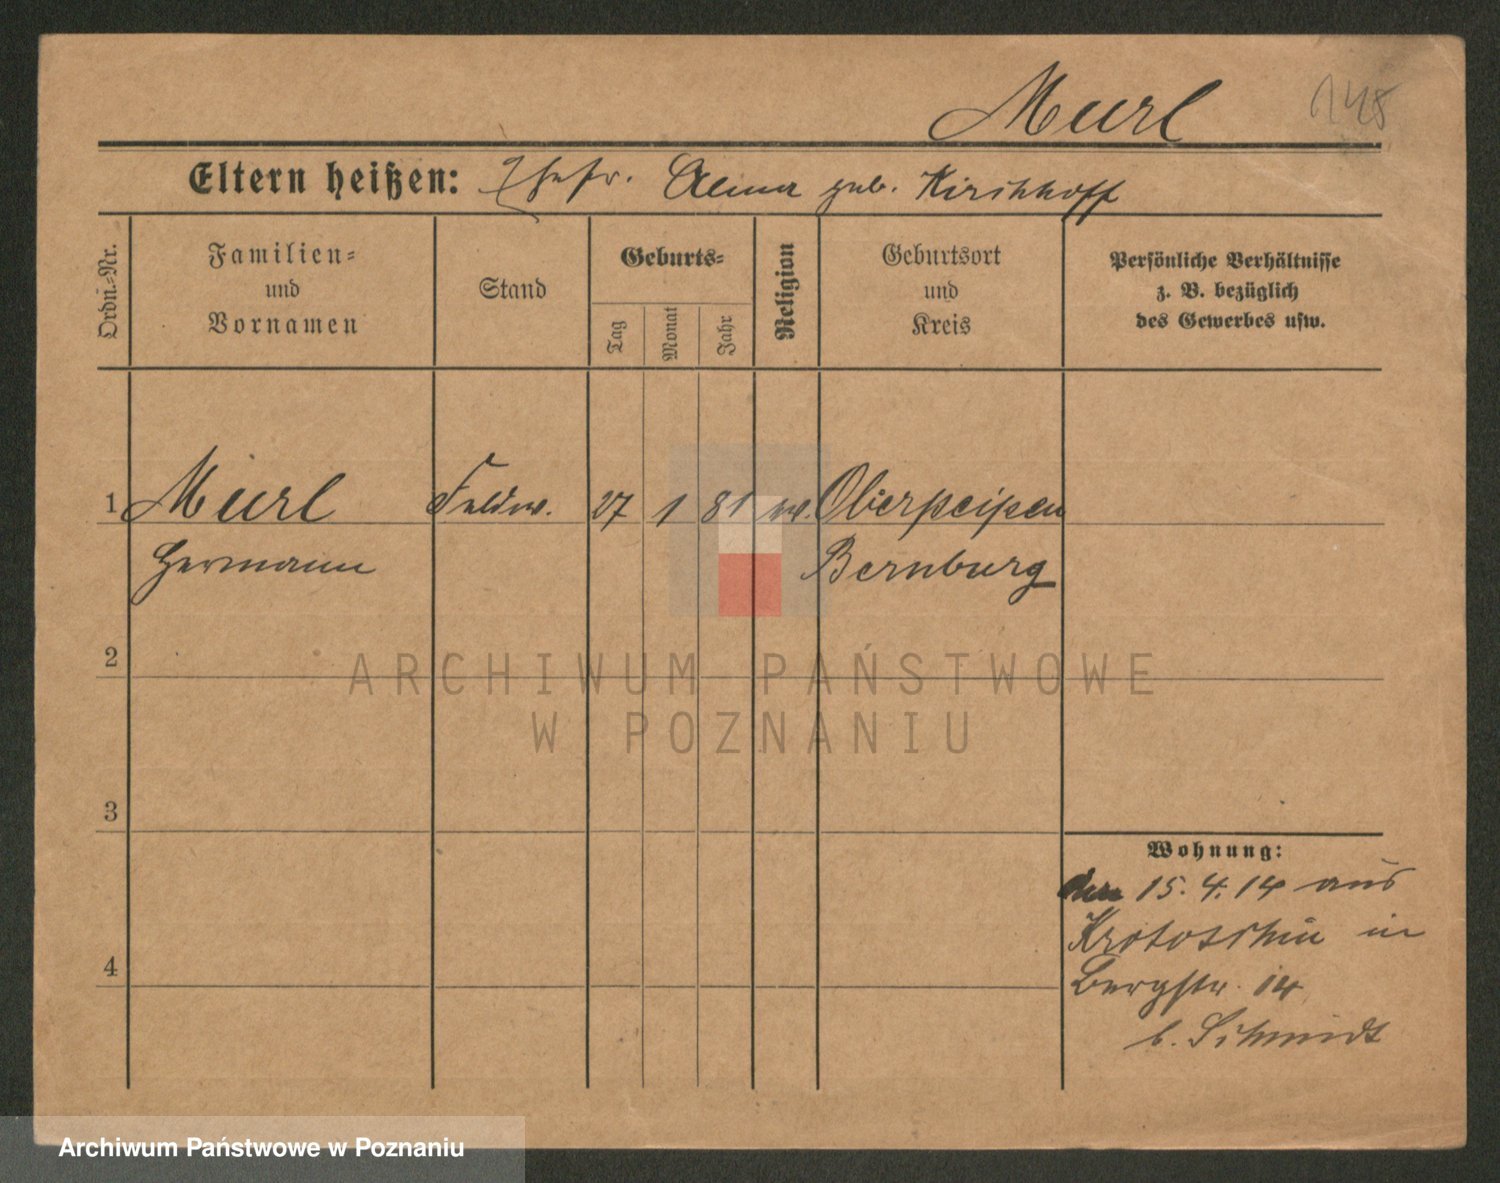 Murl 148
Eltern heißen: Ehefr. Alma geb. Kirchhoff
Ordn.-Nr.
Familien=
und
Vornamen
Stand
Geburts=
Tag
Monat
Jahr
Religion
Geburtsort
und
Kreis
Persönliche Verhältnisse
z. B. bezüglich
des Gewerbes usw.
1 Murl Feldw. 27 1 81 ev. Oberpeißen
Hermann Bernburg
2
ARCHIWUM PAŃSTWOWE
W POZNANIU
3
Wohnung:
15. 4. 14 aus
Krotoschin in
4
Bergstr. 14
b. Schmidt
Archiwum Państwowe w Poznaniu